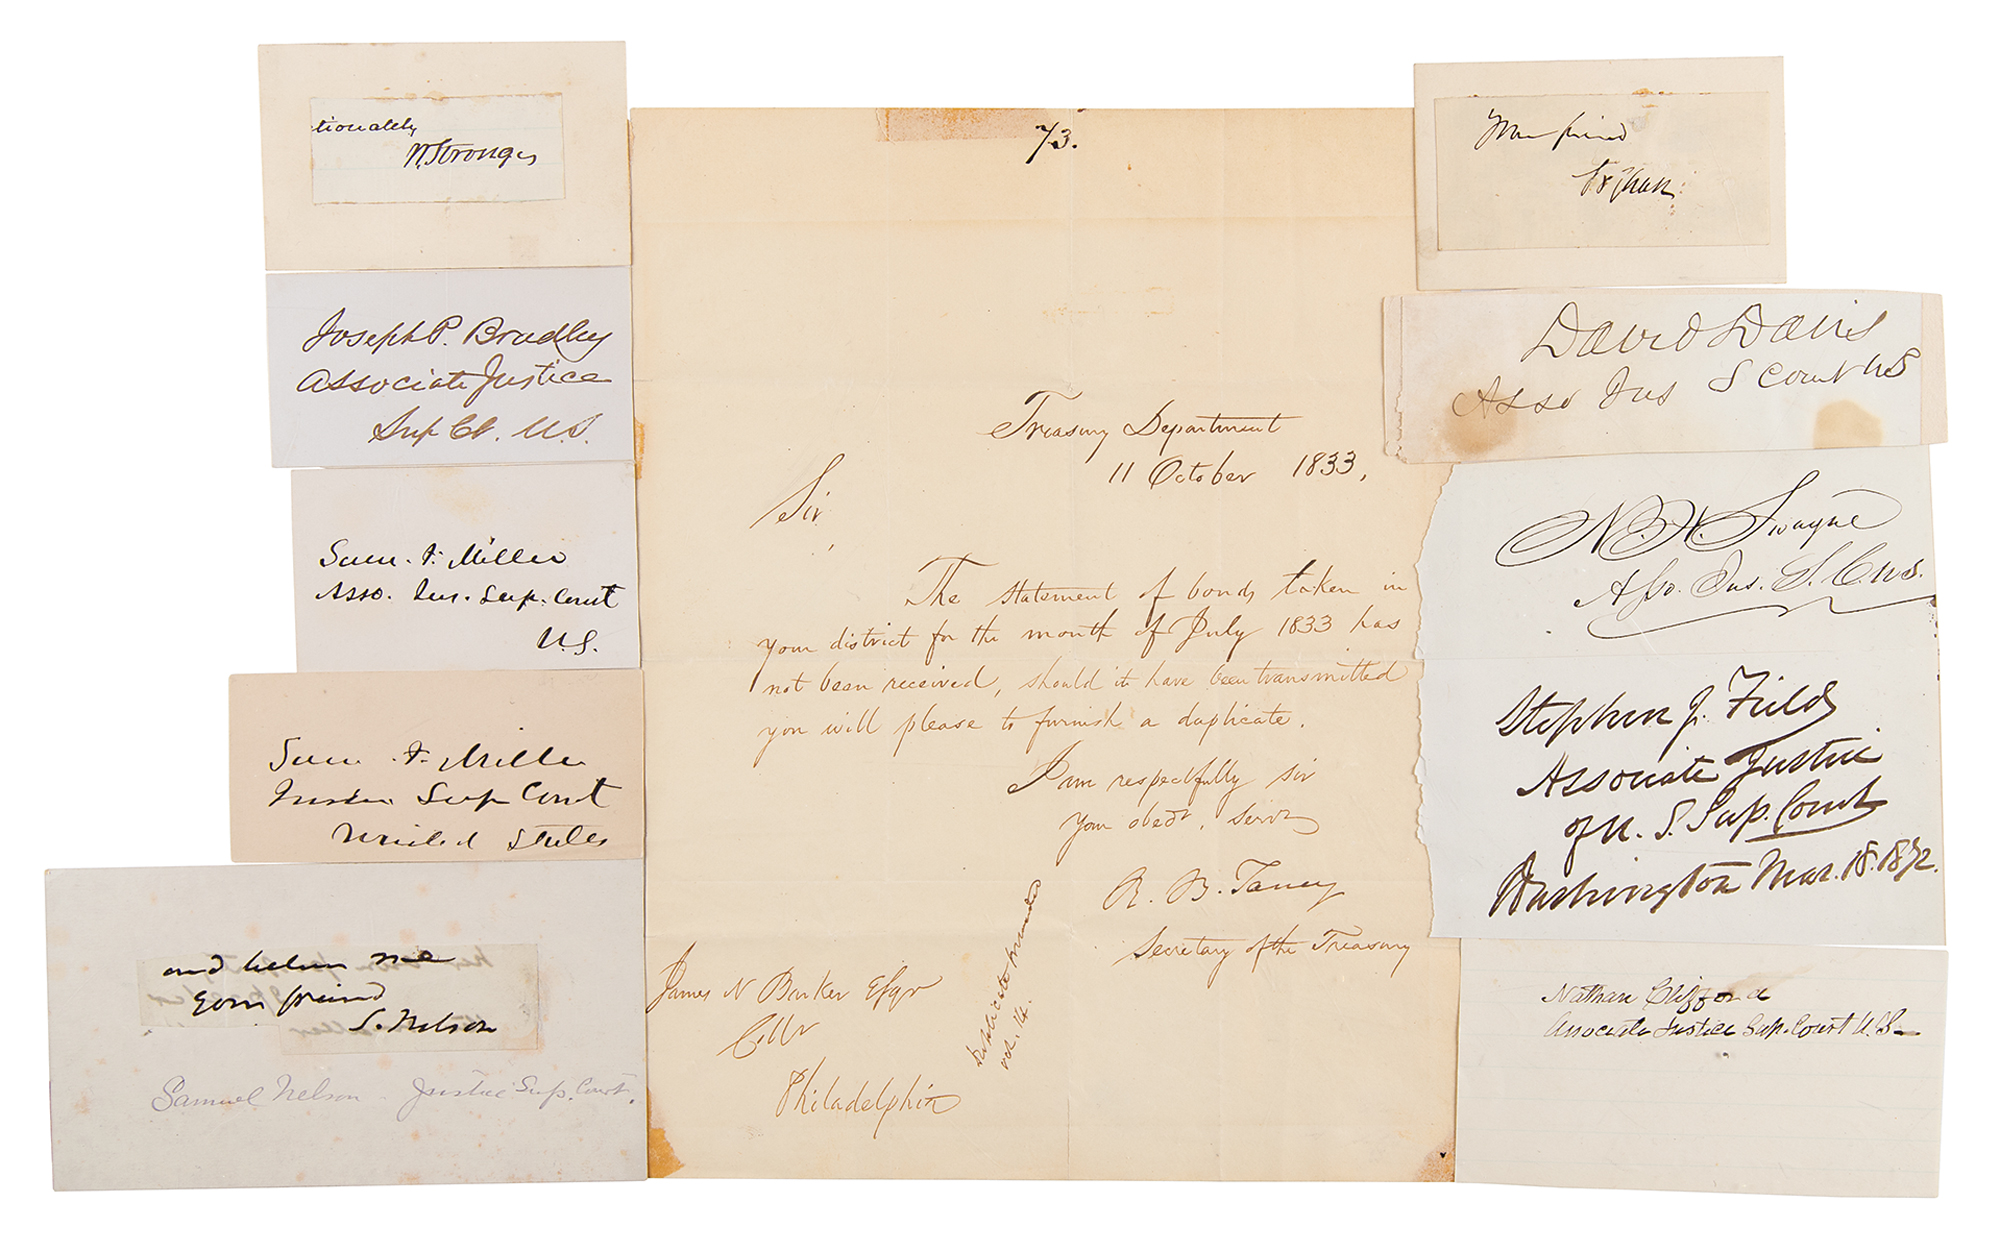 tionately
W. Strong
Joseph P. Bradley
Associate Justice
Sup Ct. U.S.
Sam. F. Miller
Asso. Jus. Sup. Court
U.S.
Sam. F. Miller
Justice Sup Court
United States
and believe me
your friend
S. Nelson
Samuel Nelson - Justice Sup. Court.
73.
Treasury Department
11 October 1833.
Sir,
The statement of bonds taken in
your district for the month of July 1833 has
not been received, should it have been transmitted
you will please to furnish a duplicate.
I am respectfully sir
Your obedt. Servt
R. B. Taney
Secretary of the Treasury
James N Barker Esqr
Collr
Philadelphia
Duplicate
oct. 14.
Your friend
David Davis
Asso Jus S Court US
N. H. Swayne
Asso. Jus. S. C. U.S.
Stephen J. Field
Associate Justice
of U. S. Sup. Court
Washington Mar. 18. 1872.
Nathan Clifford
Associate Justice Sup. Court U.S.